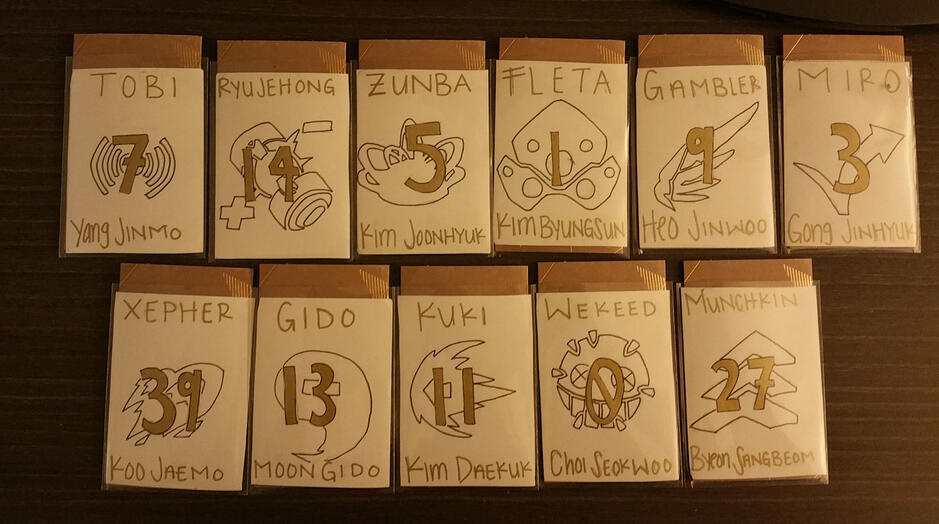 TOBI
7
Yang JINMO
RYUJEHONG
14
ZUNBA
5
Kim JOONHYUK
FLETA
1
Kim BYUNGSUN
GAMBLER
9
HEO JINWOO
MIRO
3
Gong JINHYUK
XEPHER
39
KOO JAEMO
GIDO
13
MOON GIDO
KUKI
11
Kim DAEKUK
WEKEED
0
CHOI SEOKWOO
MUNCHKIN
27
Byeon SANGBEOM